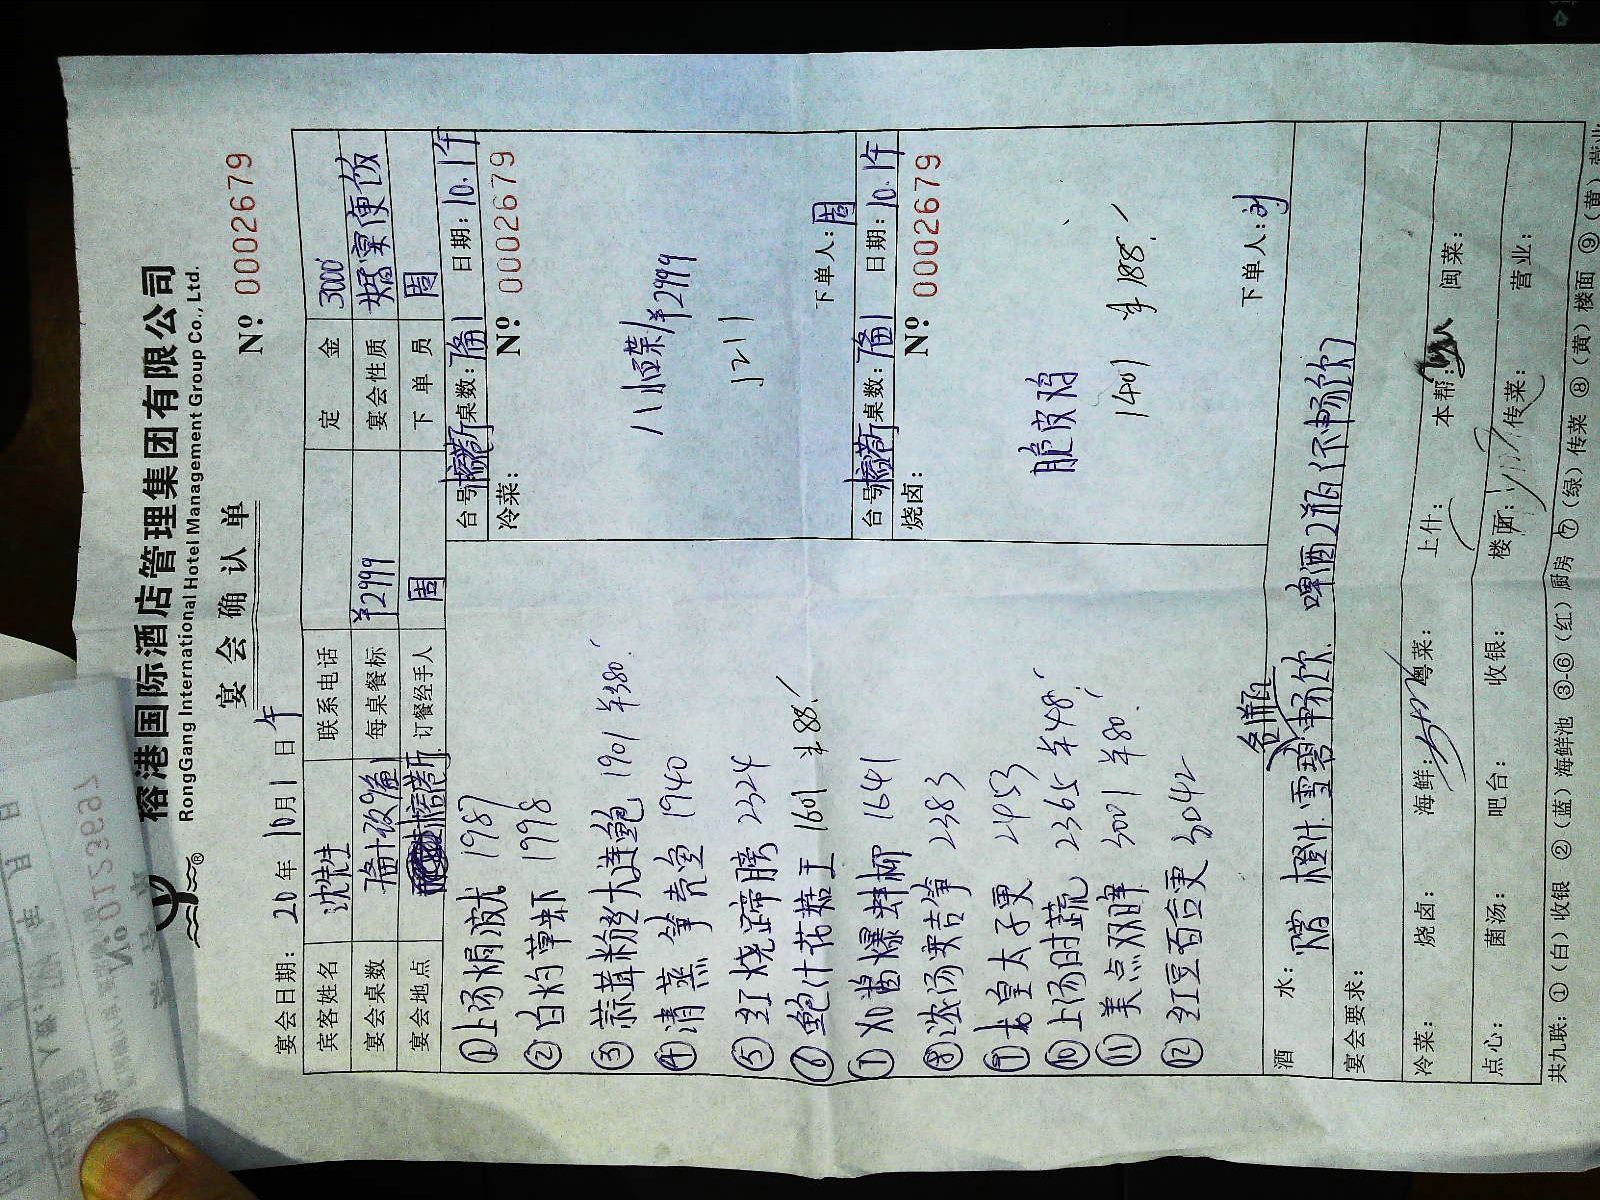 榕港国际酒店管理集团有限公司
RongGang International Hotel Management Group Co., Ltd.
宴会确认单
№ 0002679
宴会日期: 20 年 10月 1 日 午
宾客姓名 沈先生 联系电话 定金 3000
宴会桌数 每桌餐标 ¥2999 宴会性质 婚宴便饭
宴会地点 订餐经手人 周 下单员 周
①上汤焗波龙 1987
②白灼草虾 1998
③蒜茸粉丝大连鲍 1901 ¥380
④清蒸笋壳鱼 1940
⑤红烧蹄膀 2324
⑥鲍汁花菇王 1601 ¥88
⑦XO酱爆鲜柳 1641
⑧浓汤娄吉笋 2383
⑨太子更 2453
⑩上汤时蔬 2365 ¥48
⑪美点双晖 3001 ¥80
⑫红豆百合更 3042
台号: 桌数: 日期: 10.1午
冷菜: № 0002679
八小碟/¥2999
1211
下单人: 周
台号: 桌数: 日期: 10.1午
烧卤: № 0002679
脆皮鸡
1401 ¥188
下单人: 刘
酒水: 赠 橙汁.雪碧畅饮. 啤酒2瓶(不畅饮)
宴会要求:
冷菜: 烧卤: 海鲜: 粤菜: 上什: 本帮: 闽菜:
点心: 菌汤: 吧台: 收银: 楼面: 传菜: 营业:
共九联: ①(白)收银 ②(蓝)海鲜池 ③-⑥(红)厨房 ⑦(绿)传菜 ⑧(黄)楼面 ⑨(黄)营业